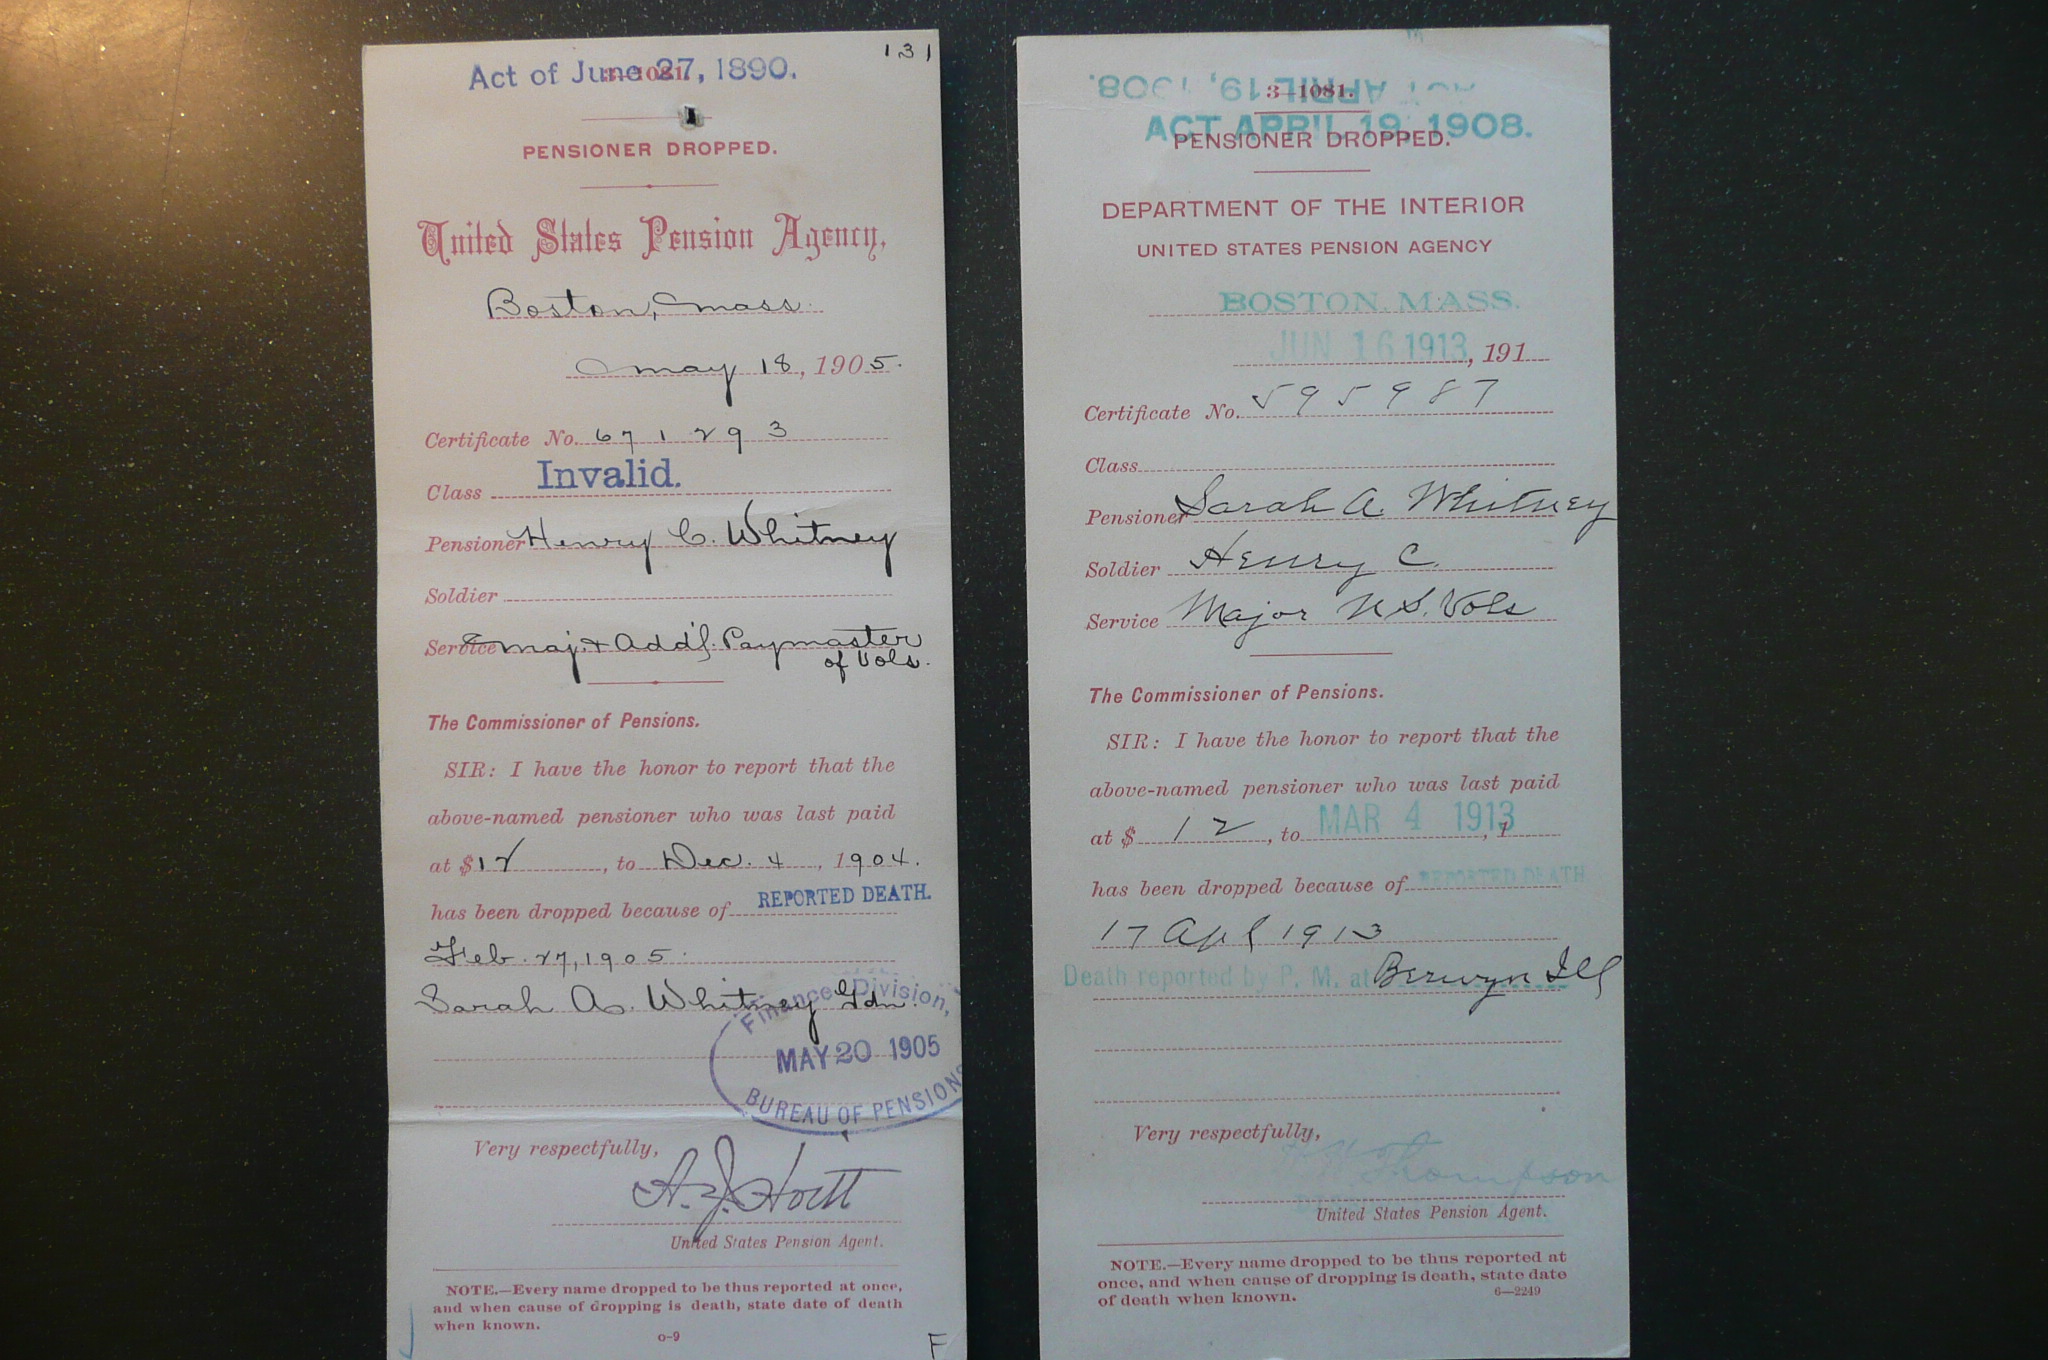 131
Act of June 27, 1890.
3—1081.
PENSIONER DROPPED.
United States Pension Agency,
Boston, Mass.
May 18, 1905.
Certificate No. 671293
Class Invalid.
Pensioner Henry C. Whitney
Soldier
Service Maj. & Add'l. Paymaster
of Vols.
The Commissioner of Pensions.
SIR: I have the honor to report that the
above-named pensioner who was last paid
at $12, to Dec. 4, 1904.
has been dropped because of REPORTED DEATH.
Feb. 27, 1905.
Sarah A. Whitney Gdn.
Finance Division,
MAY 20 1905
BUREAU OF PENSIONS
Very respectfully,
A. J. Hoitt
United States Pension Agent.
NOTE.—Every name dropped to be thus reported at once,
and when cause of dropping is death, state date of death
when known.
o-9
F
ACT APRIL 19, 1908.
3—1081.
ACT APRIL 19, 1908.
PENSIONER DROPPED.
DEPARTMENT OF THE INTERIOR
UNITED STATES PENSION AGENCY
BOSTON, MASS.
JUN 16 1913, 191
Certificate No. 595987
Class
Pensioner Sarah A. Whitney
Soldier Henry C.
Service Major U.S. Vols
The Commissioner of Pensions.
SIR: I have the honor to report that the
above-named pensioner who was last paid
at $ 12, to MAR 4 1913, 1
has been dropped because of REPORTED DEATH
17 Apl 1913
Death reported by P. M. at Berwyn Ill
Very respectfully,
Thompson
United States Pension Agent.
NOTE.—Every name dropped to be thus reported at
once, and when cause of dropping is death, state date
of death when known.
6—2249